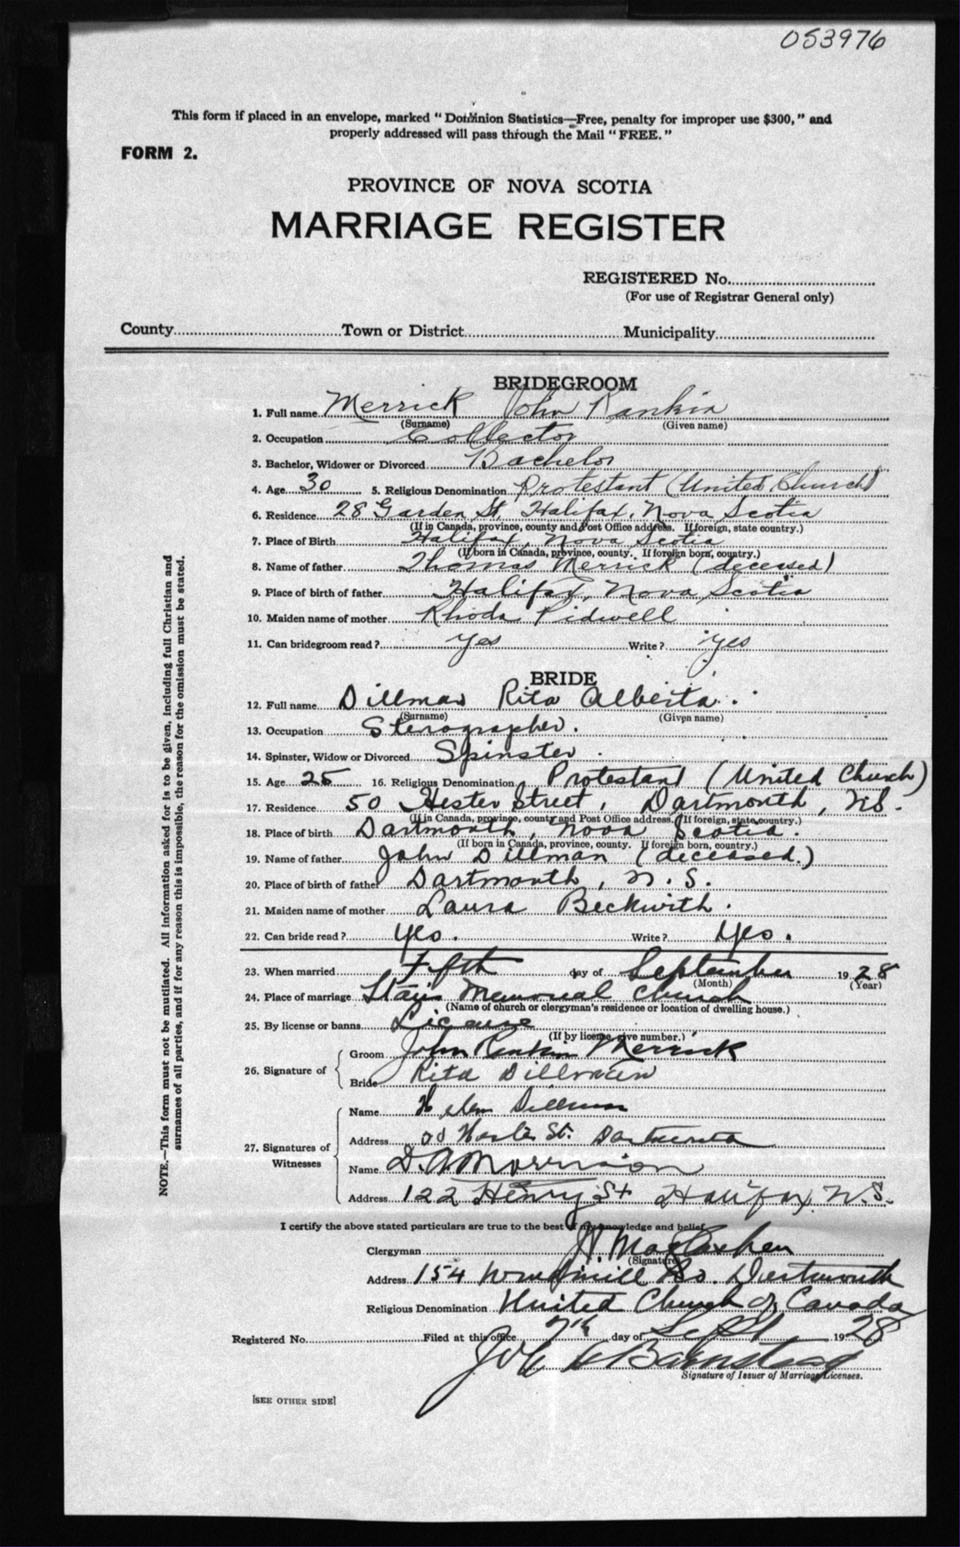 053976
This form if placed in an envelope, marked "Dominion Statistics—Free, penalty for improper use $300," and
properly addressed will pass through the Mail "FREE."
FORM 2.
PROVINCE OF NOVA SCOTIA
MARRIAGE REGISTER
REGISTERED No.
(For use of Registrar General only)
County Town or District Municipality
BRIDEGROOM
1. Full name Merrick John Rankin
(Surname) (Given name)
2. Occupation Collector
3. Bachelor, Widower or Divorced Bachelor
4. Age 30 5. Religious Denomination Protestant (United Church)
6. Residence 28 Garden St, Halifax, Nova Scotia
(If in Canada, province, county and Post Office address. If foreign, state country.)
7. Place of Birth Halifax, Nova Scotia
(If born in Canada, province, county. If foreign born, country.)
8. Name of father Thomas Merrick (deceased)
9. Place of birth of father Halifax, Nova Scotia
10. Maiden name of mother Rhoda Pidwell
11. Can bridegroom read? Yes Write? Yes
BRIDE
12. Full name Dillman Rita Alberta.
(Surname) (Given name)
13. Occupation Stenographer.
14. Spinster, Widow or Divorced Spinster.
15. Age 25 16. Religious Denomination Protestant (United Church)
17. Residence 50 Hester Street, Dartmouth, N.S.
(If in Canada, province, county and Post Office address. If foreign, state country.)
18. Place of birth Dartmouth, Nova Scotia.
(If born in Canada, province, county. If foreign born, country.)
19. Name of father John Dillman (deceased.)
20. Place of birth of father Dartmouth, N.S.
21. Maiden name of mother Laura Beckwith.
22. Can bride read? Yes. Write? Yes.
23. When married Fifth day of September 1928
(Month) (Year)
24. Place of marriage Memorial Church
(Name of church or clergyman's residence or location of dwelling house.)
25. By license or banns License
(If by license, give number.)
26. Signature of
Groom John Rankin Merrick
Bride Rita Dillman
27. Signatures of Witnesses
Name Helen Dillman
Address St. Dartmouth
Name D. A. Morrison
Address 122 Henry St Halifax, N.S.
I certify the above stated particulars are true to the best of my knowledge and belief.
Clergyman
(Signature)
Address 154 Windmill Rd. Dartmouth
Religious Denomination United Church of Canada
Registered No. Filed at this office 7th day of Sept 1928
Barnstead
Signature of Issuer of Marriage Licenses.
[SEE OTHER SIDE]
NOTE.—This form must not be mutilated. All information asked for is to be given, including full Christian and
surnames of all parties, and if for any reason this is impossible, the reason for the omission must be stated.